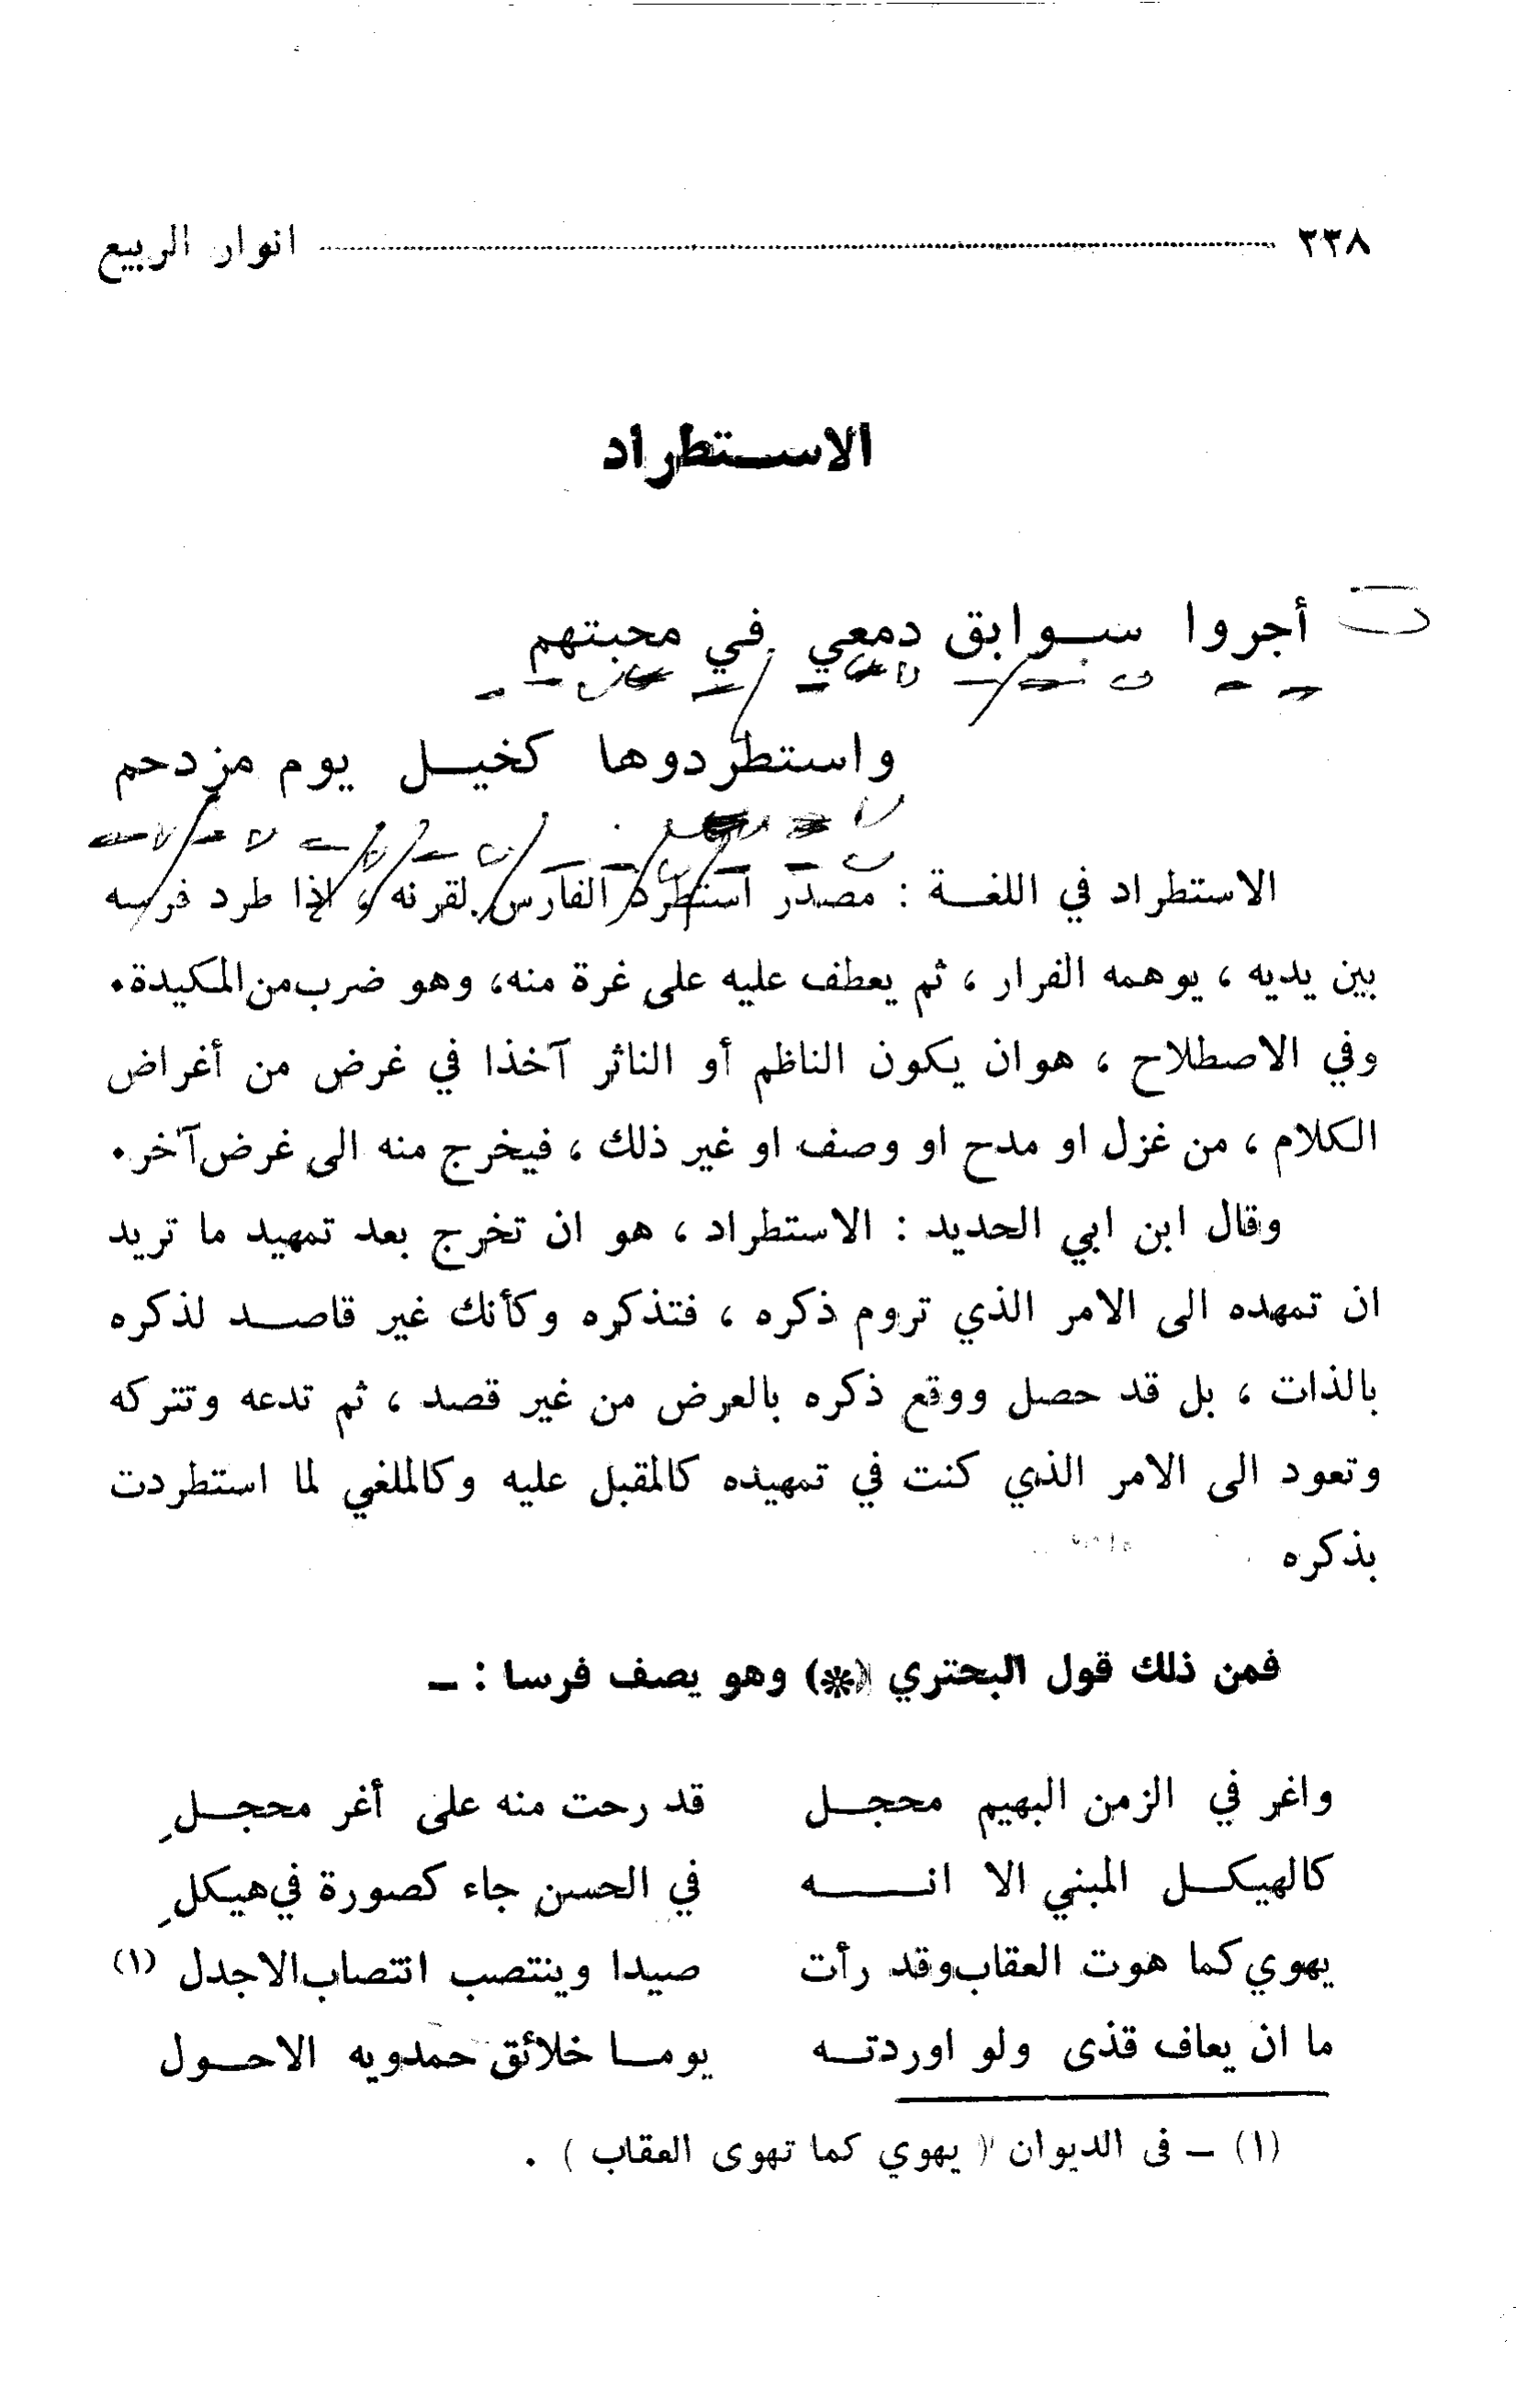 ٢٢٨ انوار الربيع
الاستطراد
أجروا سوابق دمعي في محبتهم
واستطردوها كخيل يوم مزدحم
الاستطراد في اللغة : مصدر استطرد الفارس لقرنه ، إذا طرد فرسه
بين يديه ، يوهمه الفرار ، ثم يعطف عليه على غرة منه، وهو ضرب من المكيدة.
وفي الاصطلاح ، هو ان يكون الناظم أو الناثر آخذا في غرض من أغراض
الكلام ، من غزل او مدح او وصف او غير ذلك ، فيخرج منه الى غرض آخر.
وقال ابن ابي الحديد : الاستطراد ، هو ان تخرج بعد تمهيد ما تريد
ان تمهده الى الامر الذي تروم ذكره ، فتذكره وكأنك غير قاصد لذكره
بالذات ، بل قد حصل ووقع ذكره بالعرض من غير قصد ، ثم تدعه وتتركه
وتعود الى الامر الذي كنت في تمهيده كالمقبل عليه وكالملغي لما استطردت
بذكره
فمن ذلك قول البحتري (*) وهو يصف فرسا : ـ
واغر في الزمن البهيم محجل قد رحت منه على أغر محجلِ
كالهيكل المبني الا انه في الحسن جاء كصورة في هيكلِ
يهوي كما هوت العقاب وقد رأت صيدا وينتصب انتصاب الاجدل (١)
ما ان يعاف قذى ولو اوردته يوما خلائق حمدويه الاحول
(١) ـ فى الديوان ( يهوي كما تهوى العقاب ) .